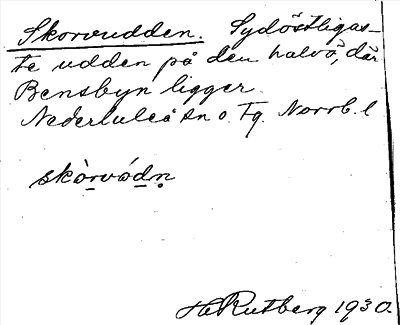 Skorvudden. Sydöstligas-
te udden på den halvö, där
Bensbyn ligger.
Nederluleå sn o. Tg. Norrb. l
skòrvódn
H Rutberg 1930.